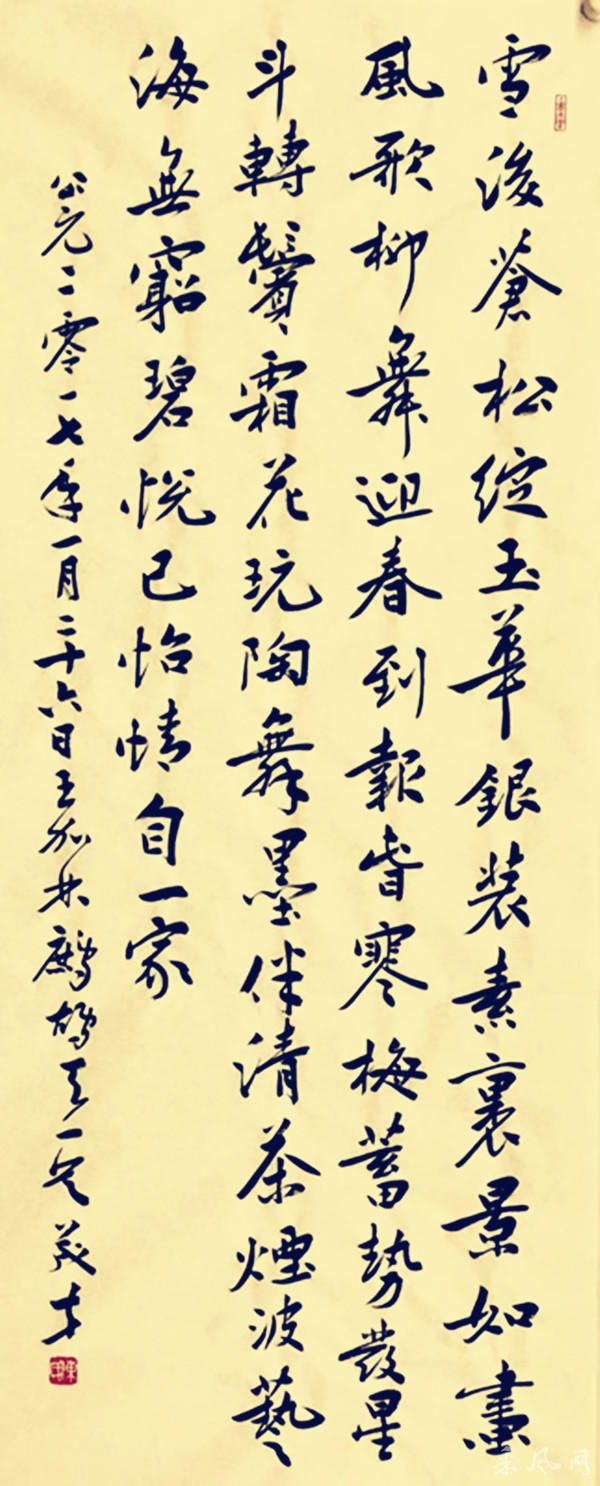 雪後蒼松綻玉華銀装素裹景如畫
風歌柳舞迎春到報旾寒梅蓄勢發星
斗轉鬢霜花玩陶舞墨伴清茶煙波藝
海無窮碧悦己怡情自一家
公元二零一七年一月二十六日王加林鷓鴣天一